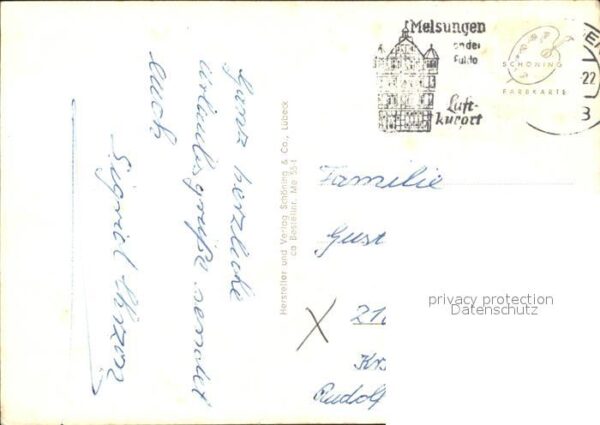 Melsungen
an der
Fulda
Luft-
kurort
SCHÖNING
FARBKARTE
22
Ganz herzliche
Urlaubsgrüße sendet
Euch
Sigrid
Hersteller und Verlag Schöning & Co., Lübeck
Bestellnr. Me 55-1
Familie
Gust
21
Kr
Rudolf
privacy protection
Datenschutz